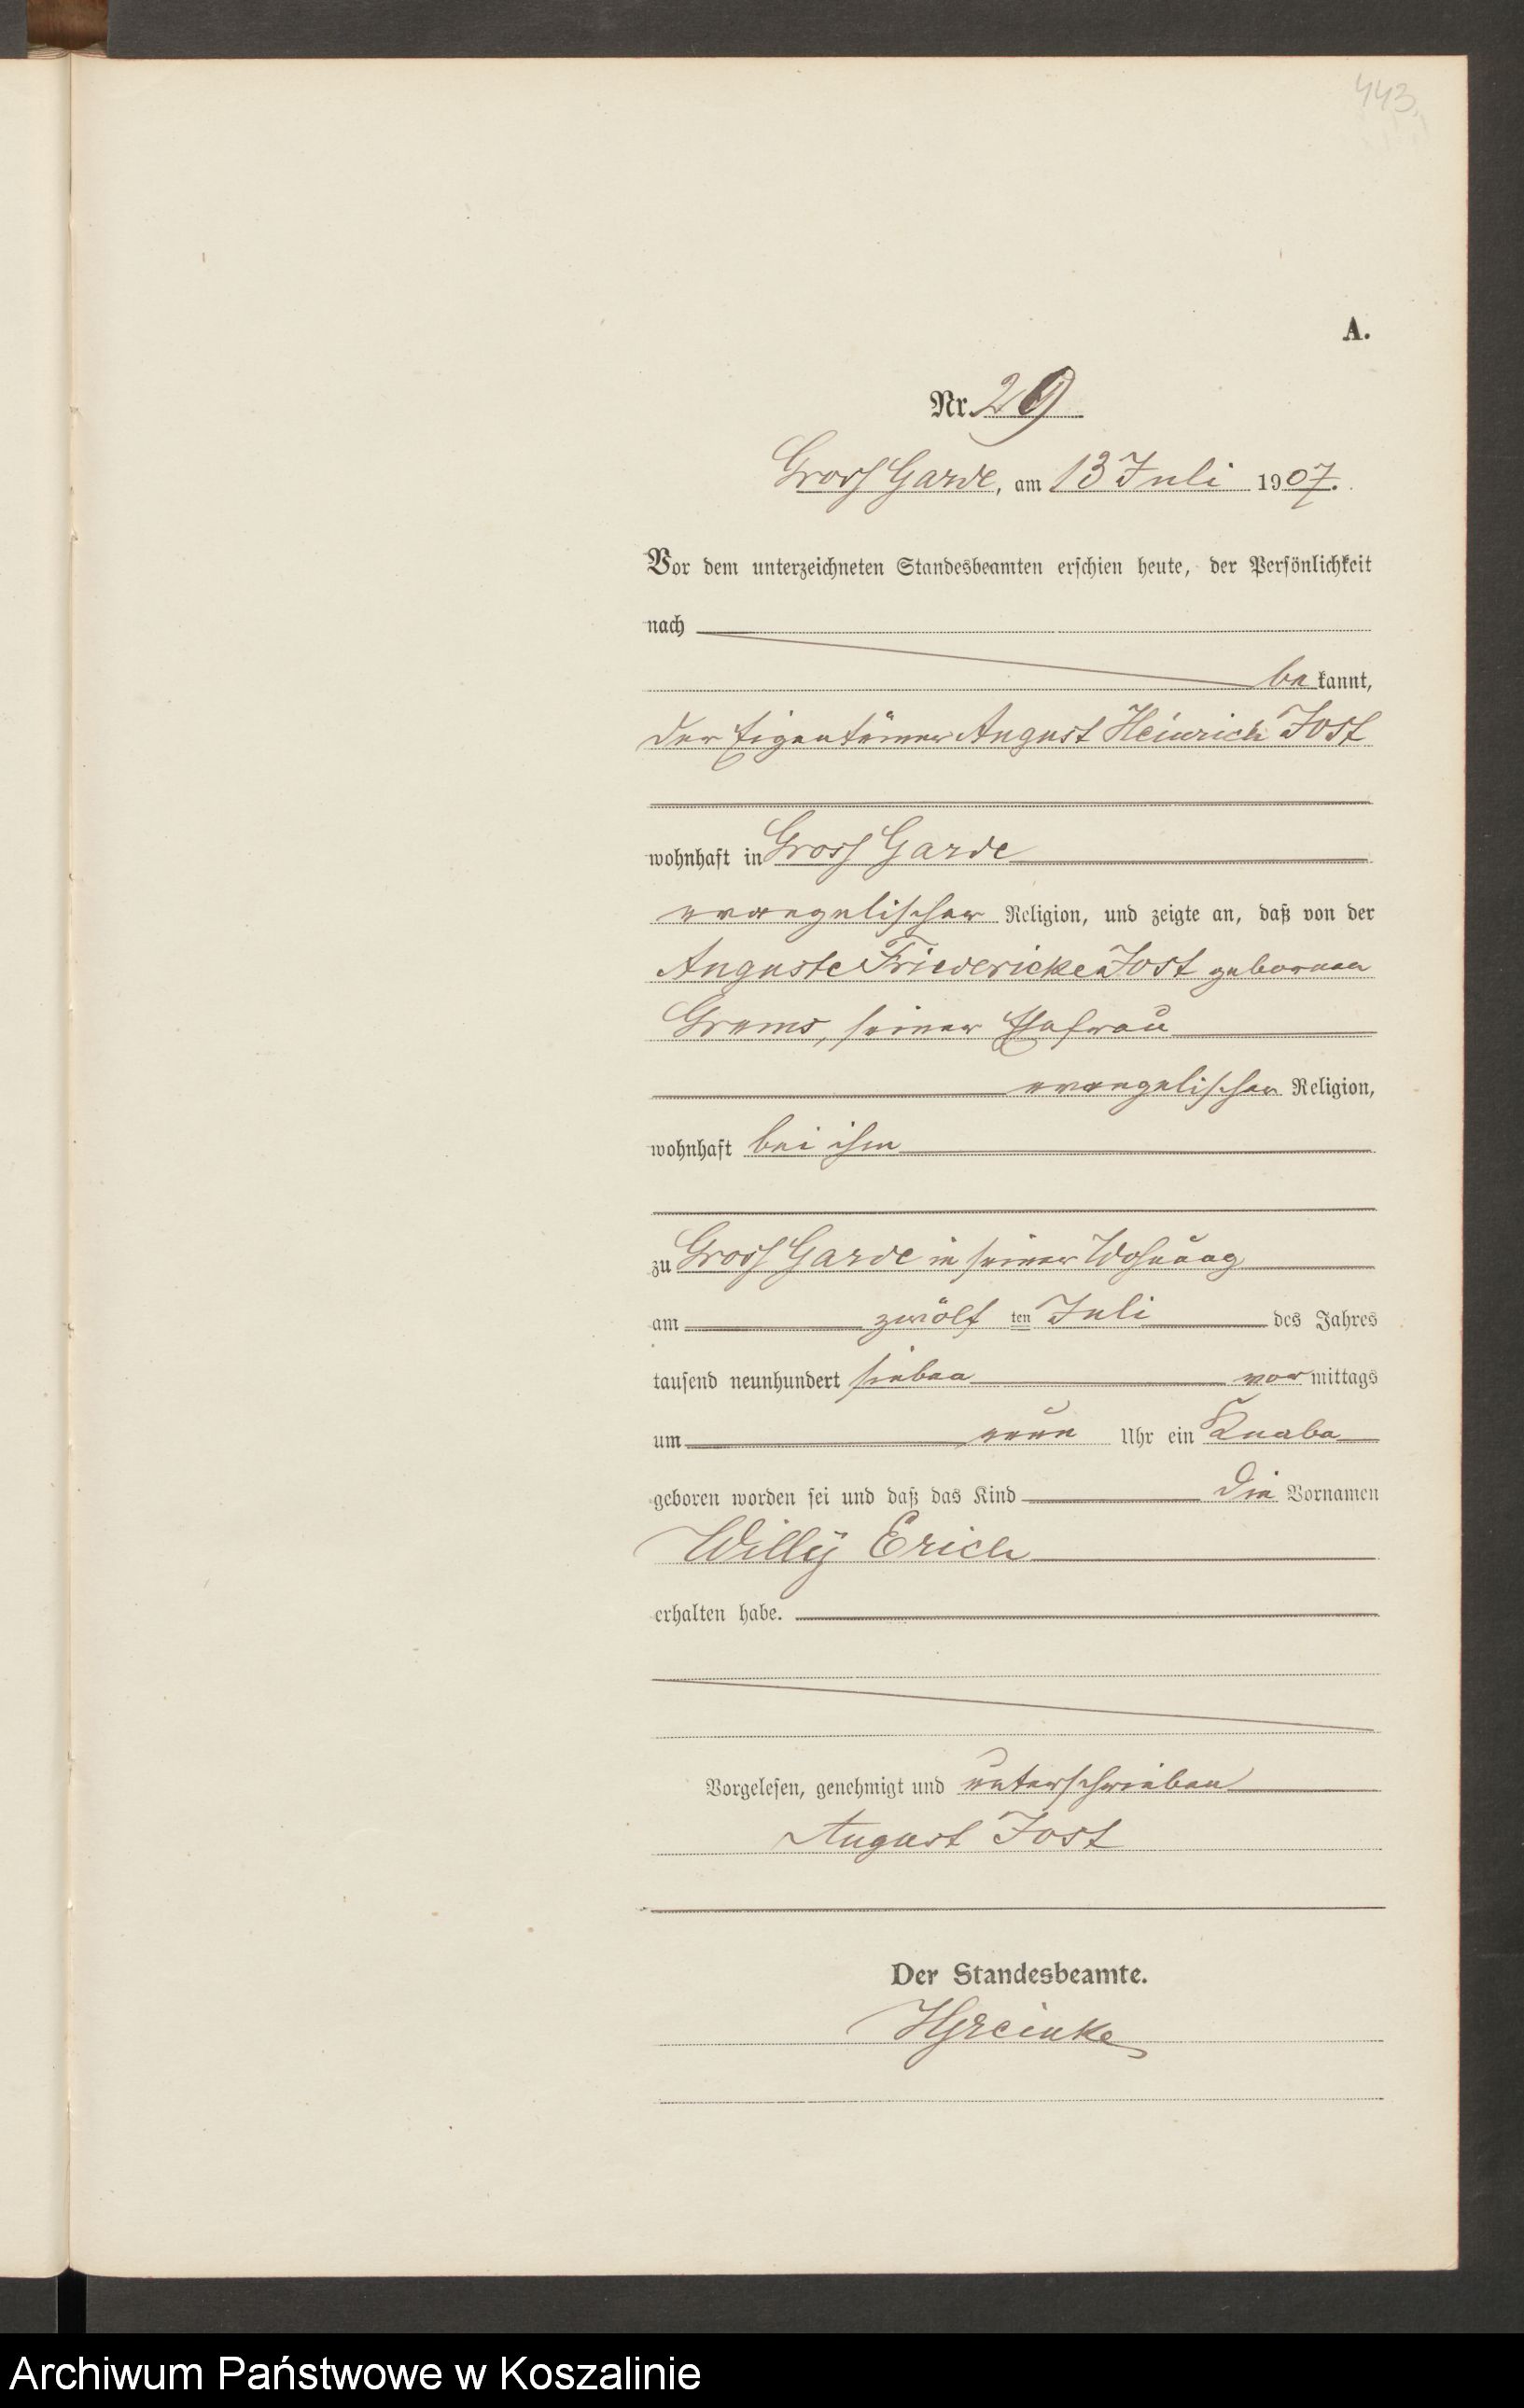 443.
A.
Nr. 29
Gross Garde, am 13 Juli 1907.
Vor dem unterzeichneten Standesbeamten erschien heute, der Persönlichkeit
nach
bekannt,
der Eigentümer August Heinrich Jost
wohnhaft in Gross Garde
evangelischer Religion, und zeigte an, daß von der
Auguste Friedericke Jost geborenen
seiner Ehefrau
evangelischer Religion,
wohnhaft bei ihm
zu Gross Garde in seiner Wohnung
am zwölf ten Juli des Jahres
tausend neunhundert sieben vormittags
um neun Uhr ein Knabe
geboren worden sei und daß das Kind die Vornamen
Willy Erich
erhalten habe.
Vorgelesen, genehmigt und unterschrieben
August Jost
Der Standesbeamte.
Archiwum Państwowe w Koszalinie